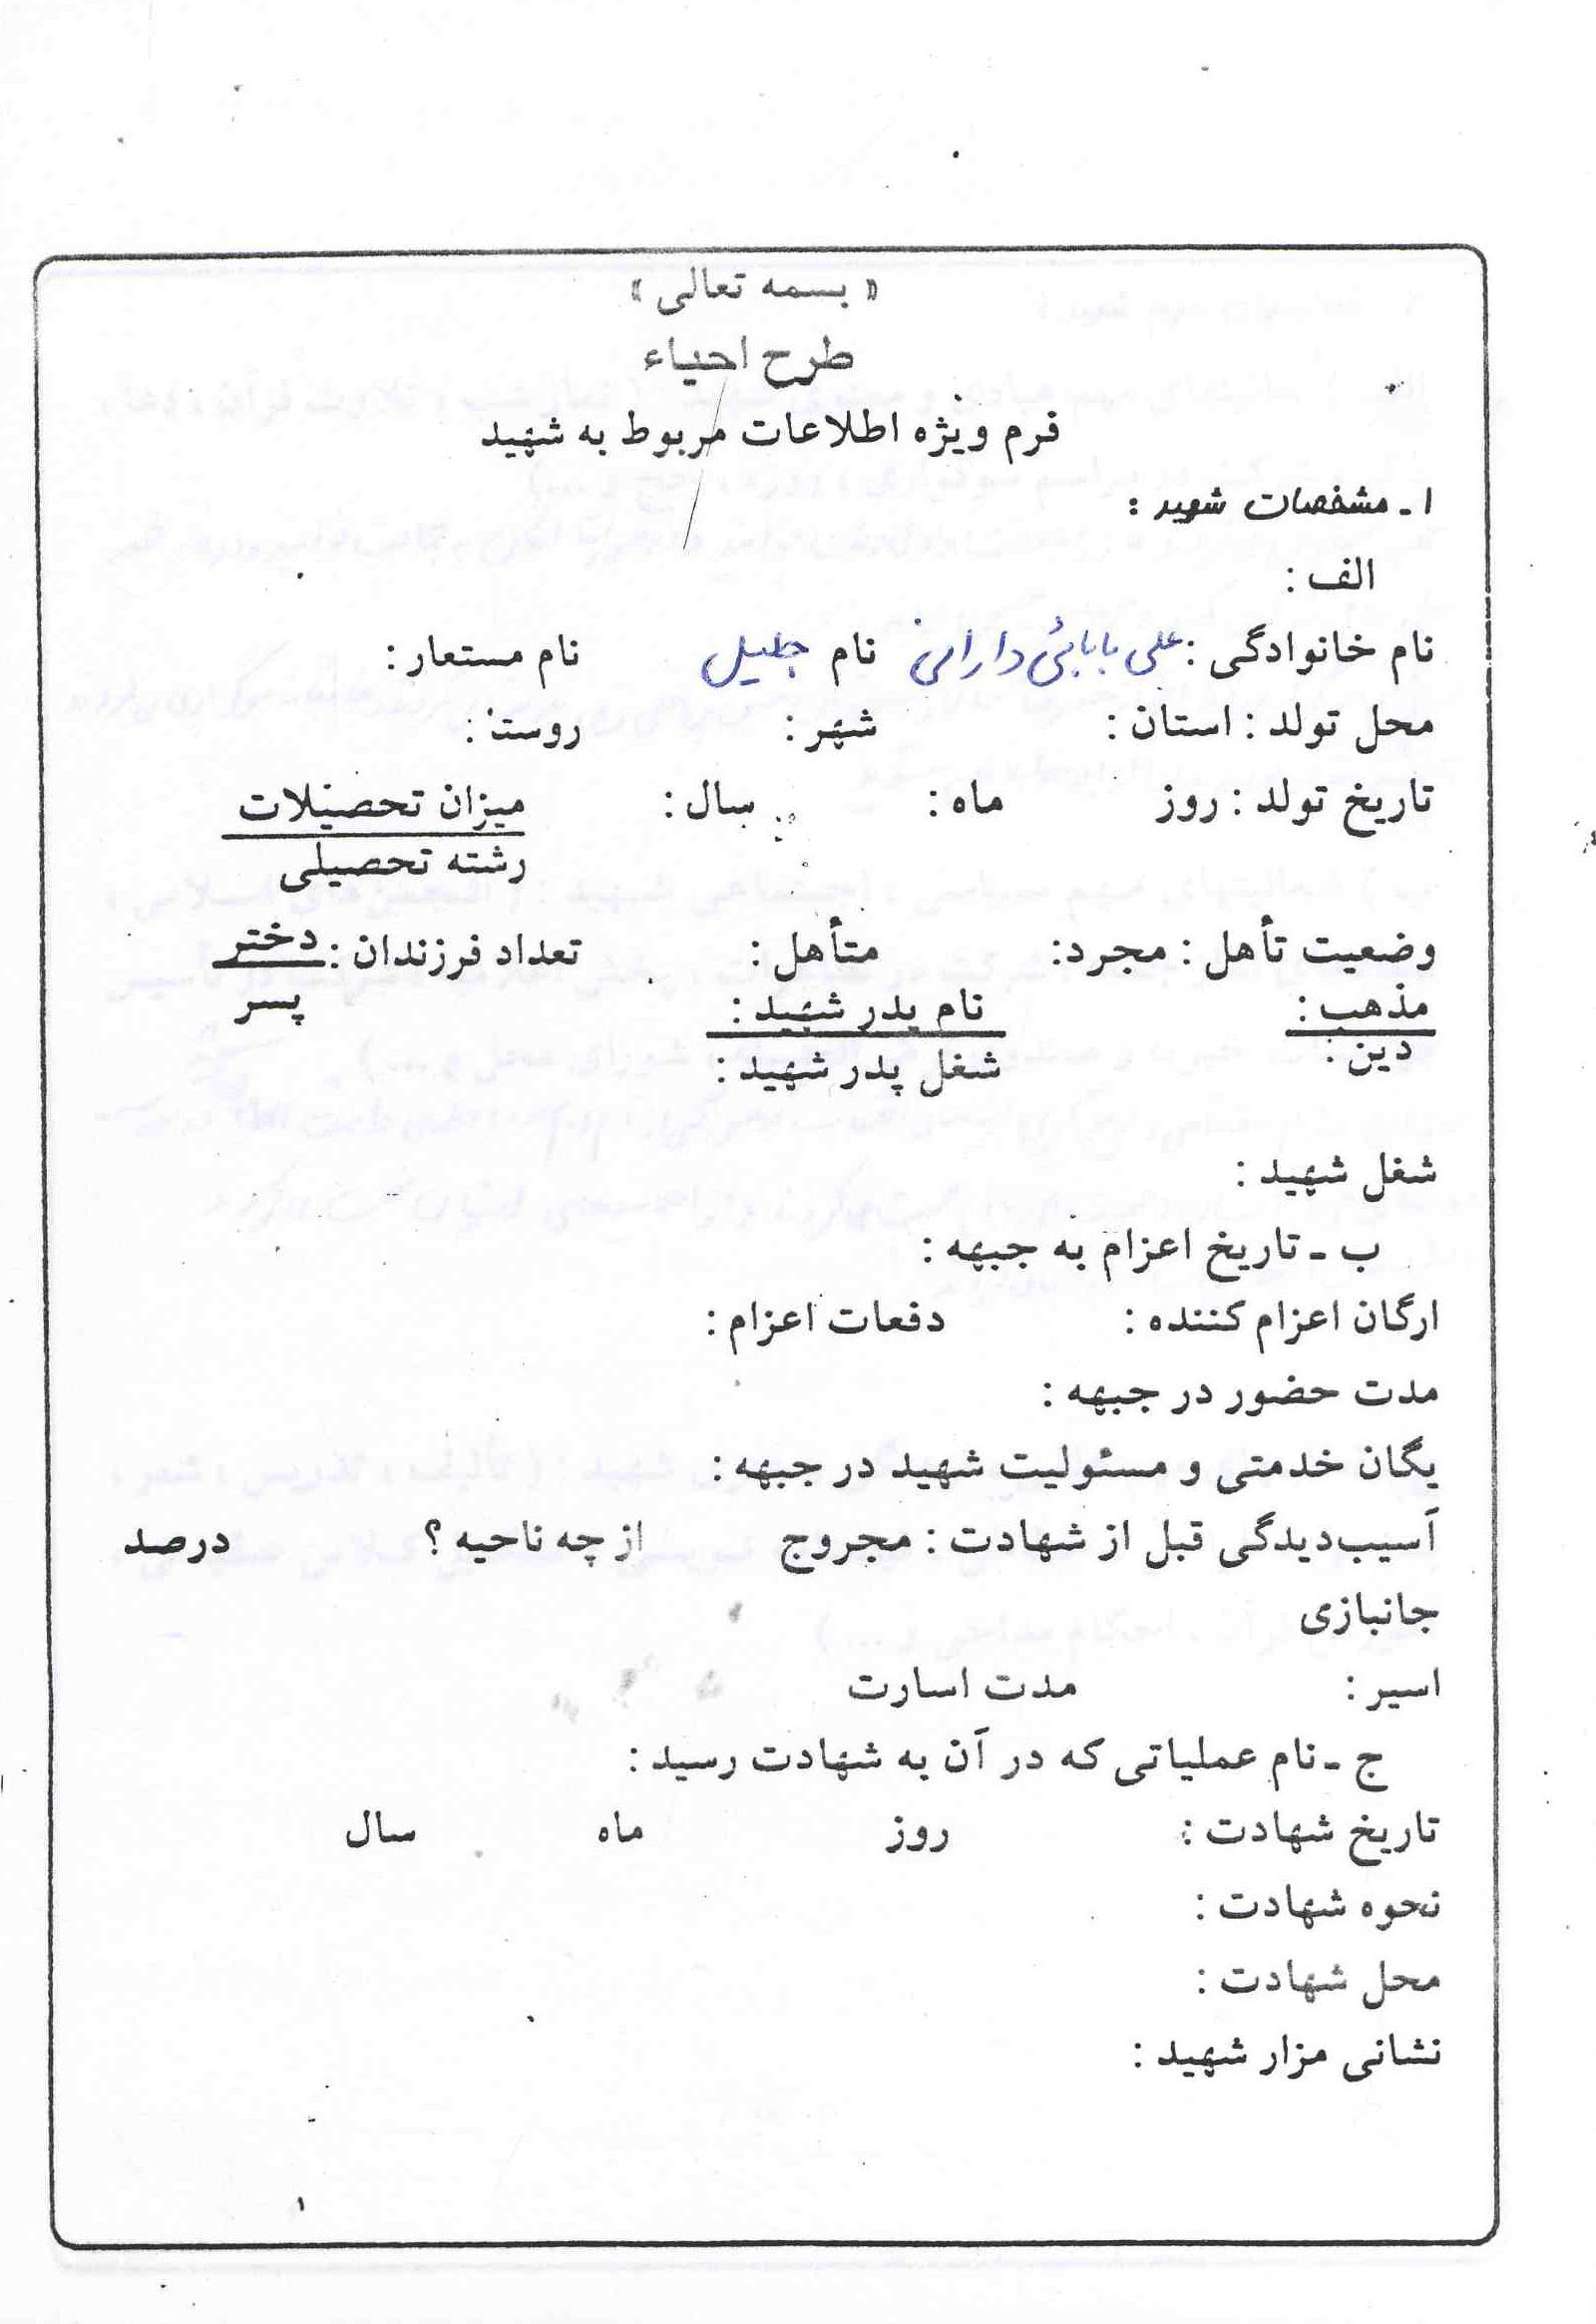 « بسمه تعالی »
طرح احیاء
فرم ویژه اطلاعات مربوط به شهید
۱ ـ مشخصات شهید :
الف :
نام خانوادگی : علی بابائی دارانی نام جلیل نام مستعار :
محل تولد : استان : شهر : روستا :
تاریخ تولد : روز ماه : سال : میزان تحصیلات
رشته تحصیلی
وضعیت تأهل : مجرد: متأهل : تعداد فرزندان : دختر
پسر
مذهب : نام پدر شهید :
دین : شغل پدر شهید :
شغل شهید :
ب ـ تاریخ اعزام به جبهه :
ارگان اعزام کننده : دفعات اعزام :
مدت حضور در جبهه :
یگان خدمتی و مسئولیت شهید در جبهه :
آسیب‌دیدگی قبل از شهادت : مجروح از چه ناحیه ؟ درصد
جانبازی
اسیر : مدت اسارت
ج ـ نام عملیاتی که در آن به شهادت رسید :
تاریخ شهادت : روز ماه سال
نحوه شهادت :
محل شهادت :
نشانی مزار شهید :
۱